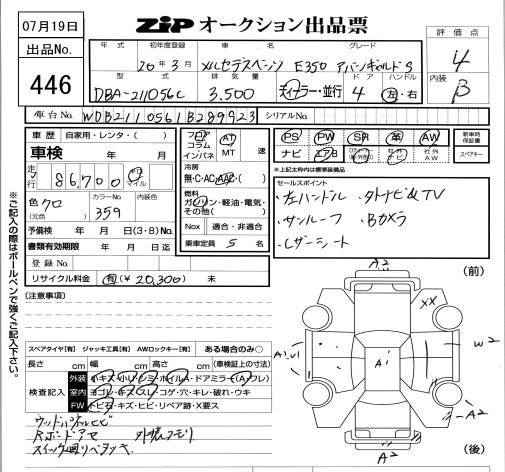 07月19日
ZIP オークション出品票
出品No.
446
評価点
4
内装
B
年式 初年度登録 車名 グレード
20年3月 メルセデスベンツ E350 アバンギャルドS
型式 排気量 ドア ハンドル
DBA-211056C 3,500 ディーラー・並行 4 左・右
車台No. WDB2110561B289923 シリアルNo.
車歴 自家用・レンタ( )
車検 年 月
走行 86,700 キロ マイル
色 クロ
(元色 )
カラーNo.
359
予備検 年 月 日(3・8)No.
書類有効期限 年 月 日迄
登録No.
リサイクル料金 有(¥20,300) 未
フロア
コラム
インパネ
AT
MT 速
冷房
無・C・AC・AAC( )
燃料
ガソリン・軽油・電気・
その他( )
Nox 適合・非適合
乗車定員 5 名
PS PW SR 革 AW
ナビ エアB 社外ナビ 社外AW
新車時保証書
スペアキー
*上記太枠内は標準装備品
セールスポイント
左ハンドル ・外ナビ&TV
・サンルーフ ・Bカメラ
・レザーシート
※ご記入の際はボールペンで強くご記入下さい。
[注意事項]
スペアタイヤ[有] ジャッキ工具[有] AWロックキー[有] ある場合のみ○
長さ cm 幅 cm 高さ cm (車検証上の寸法)
検査記入
外装
室内
FW トビ石・キズ・ヒビ・リペア跡・X要ス
(前)
A2
XX
W2
A1
A2
A2
(後)